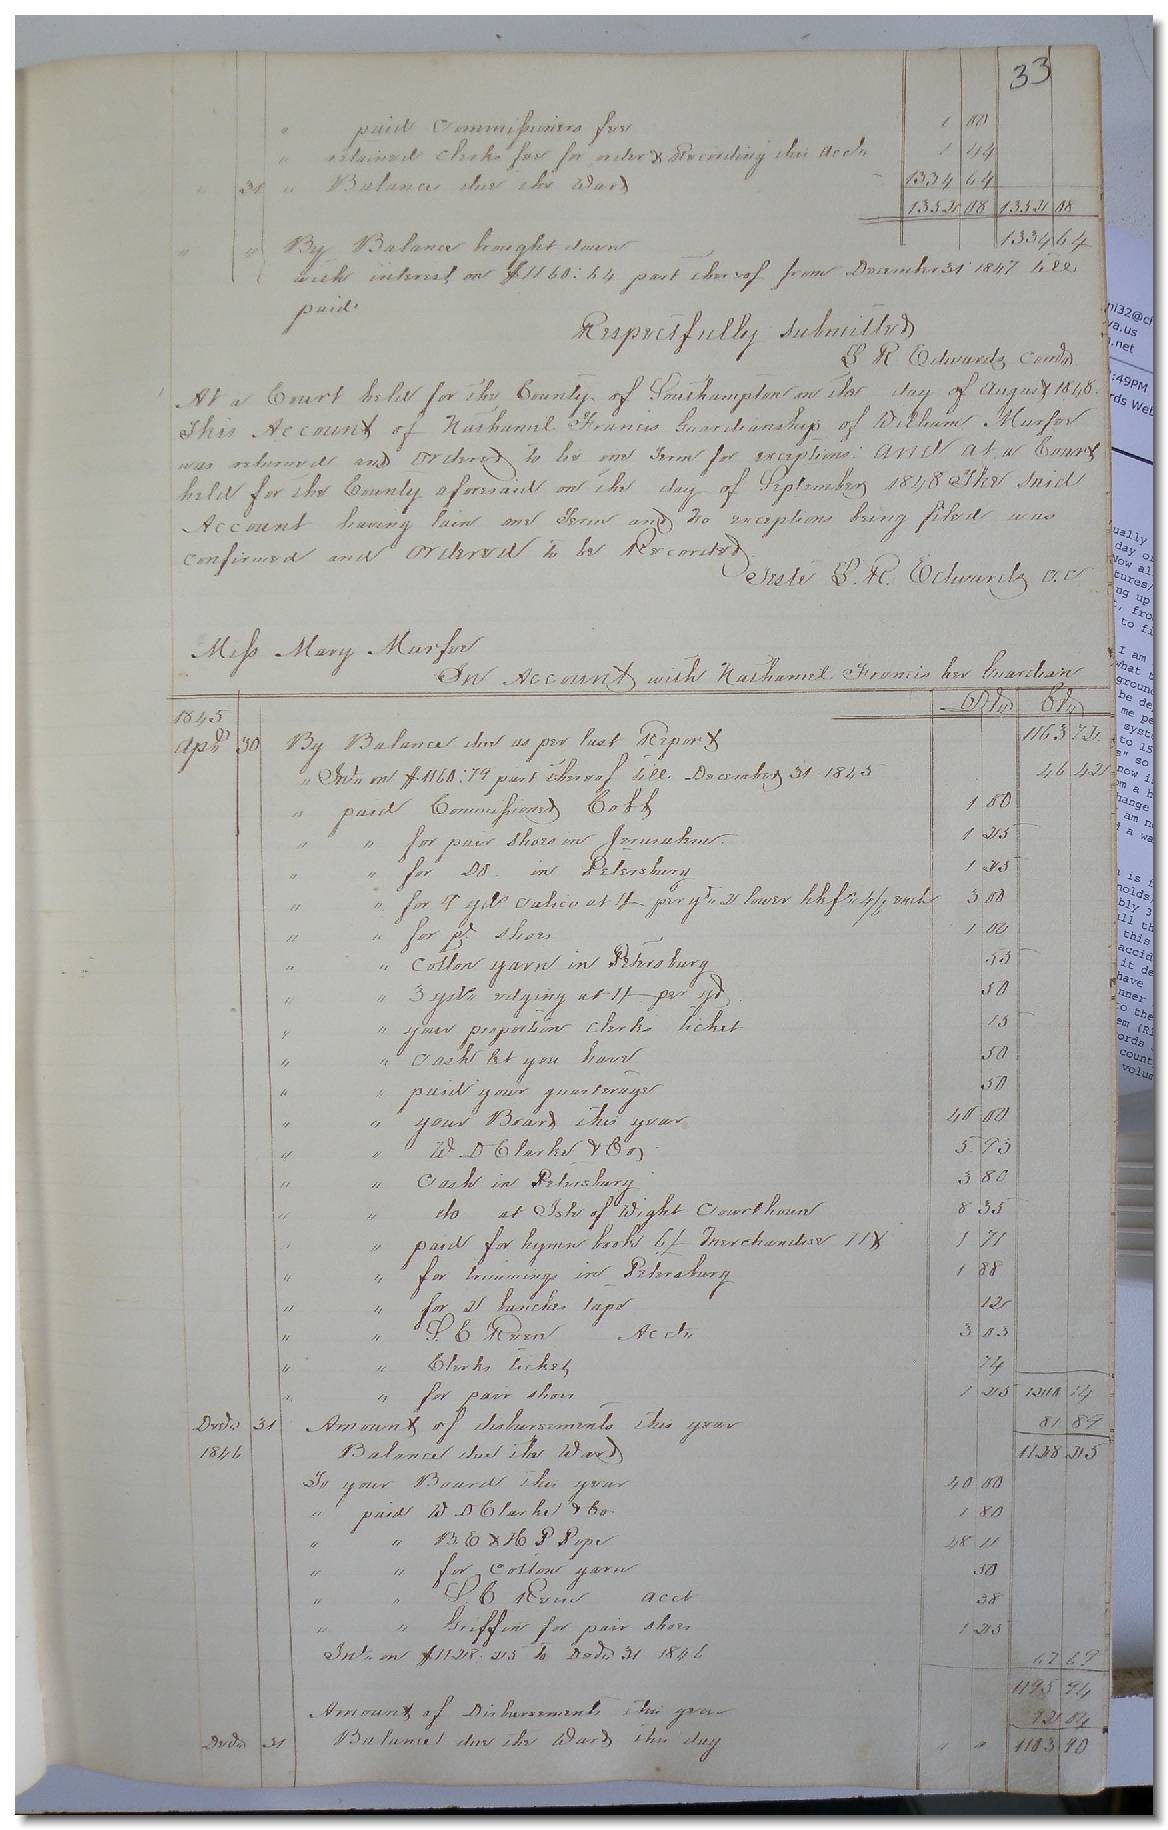 33
" paid Commissioners fee 1 00
" retained Clerks fee for order & Recording this Acct. 1 44
" 31 " Balance due the Ward 1334 64
1352 08 1352 08
1334 64
" " By Balance brought down
with interest on $1160:64 part thereof from December 31 1847 till
paid
Respectfully submitted
L R Edwards Comr
At a Court held for the County of Southampton on the day of August 1848.
This Account of Nathaniel Francis Guardianship of William Murfee
was returned and ordered to lie one Term for exceptions: and at a Court
held for the County aforesaid on the day of September 1848 The said
Account having lain one Term and no exceptions being filed was
confirmed and ordered to be Recorded
Teste L. R. Edwards C.C
Miss Mary Murfee
In Account with Nathaniel Francis her Guardian
Dr Cr
1845
Apr 30 By Balance due as per last Report 1163 72
" Int. on $1160:79 part thereof till December 31 1845 46 42
" paid Commissioner Cobb 1 00
" " for pair shoes in Jerusalem 1 25
" " for Do. in Petersburg 1 25
" " for 9 yds calico at 1/- per yd. 2 hkfs 4/6 each 3 00
" " for pr shoes 1 00
" " cotton yarn in Petersburg 55
" " 3 yds edging at 1/- per yd 50
" " your proportion clerks ticket 15
" " cash let you have 50
" " paid your quarterage 50
" " your Board this year 40 00
" " W D Clarke & Co 5 93
" " Cash in Petersburg 3 80
" " do at Isle of Wight Courthouse 8 35
" " paid for hymn book 6/ Merchandise 1 71
" " for trimmings in Petersburg 1 88
" " for 2 bunches tape 12
" " Acct. 3 03
" " Clerks ticket 74
" " for pair shoes 1 25 1210 14
Decr. 31 Amount of disbursements this year 81 89
1846 Balance due the Ward 1128 25
To your Board this year 40 00
" paid W D Clarke & Co. 1 80
" " B. E & H P Pope 28 11
" " for cotton yarn 50
" " acct 38
" " Griffin for pair shoes 1 25
Int. on $1128:25 to Decr. 31 1846 67 69
1195 94
Amount of Disbursements this year 92 04
Decr. 31 Balance due the Ward this day " " 1103 90
ni32@c
va.us
.net
:49PM
rds Web